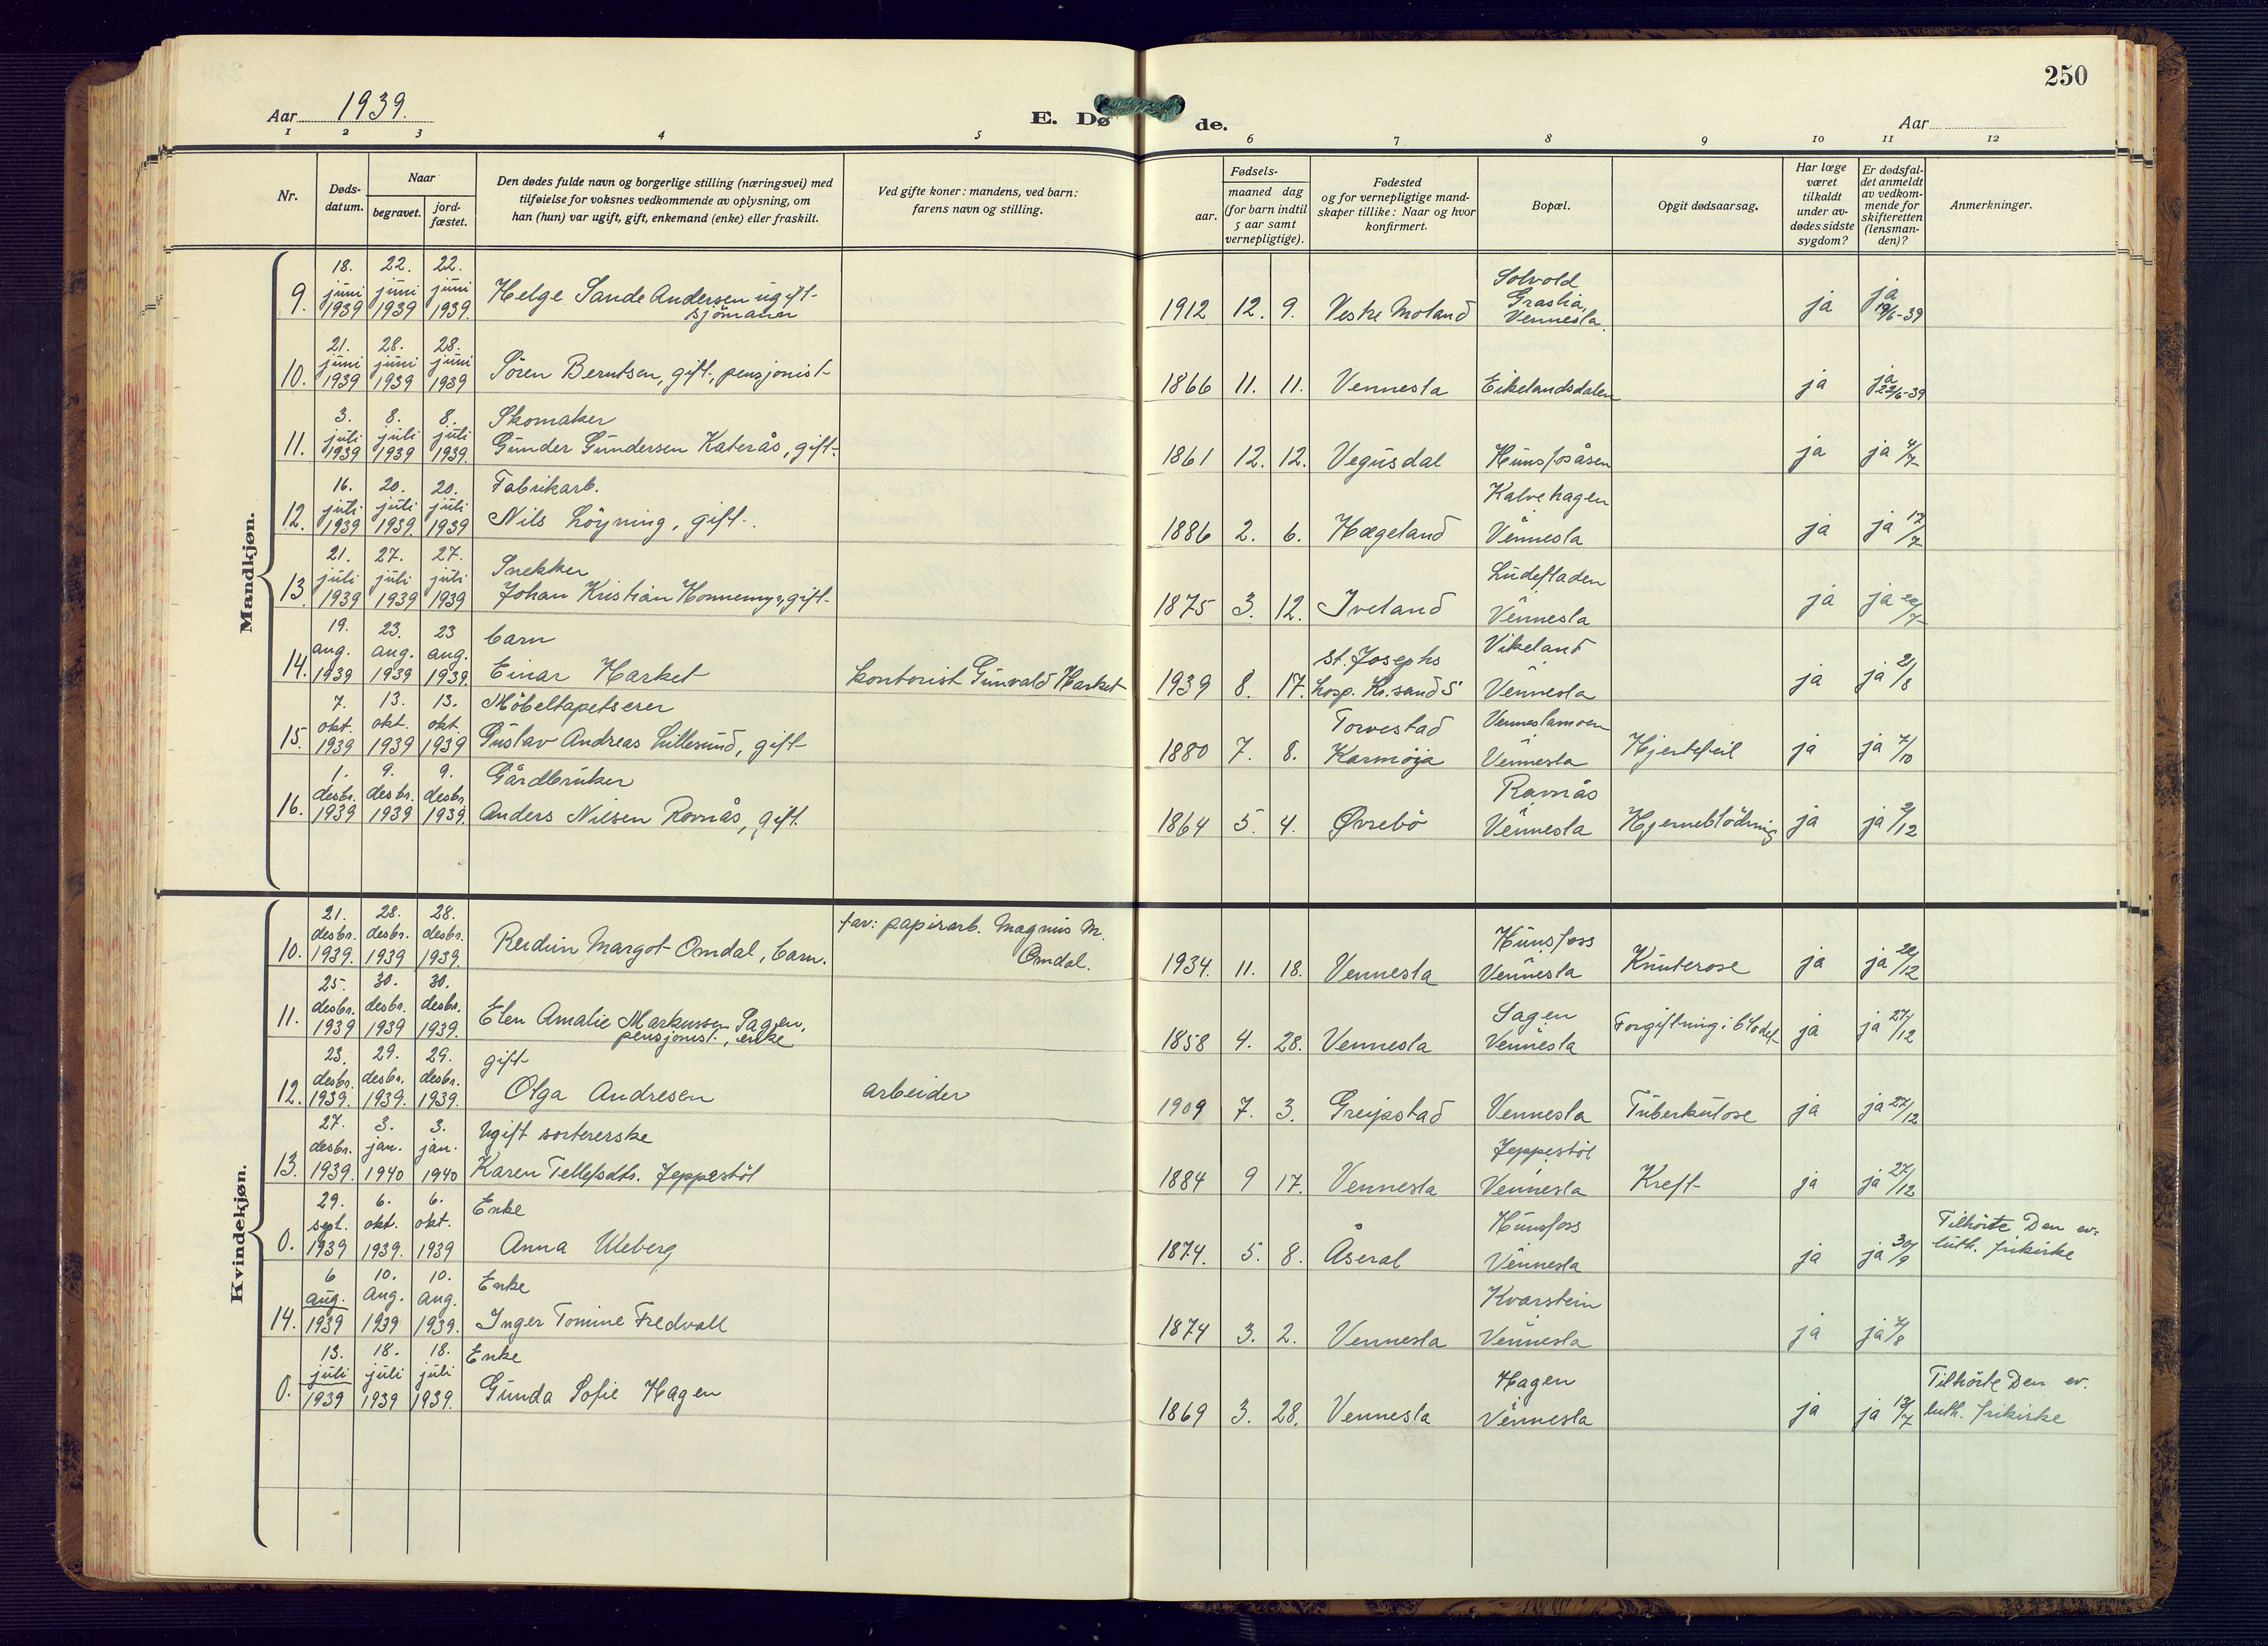 250
Aar 1939.
E. Døde.
Aar
1 2 3 4 5 6 7 8 9 10 11 12
Nr.
Døds-
datum.
Naar
begravet.
jord-
fæstet.
Den dødes fulde navn og borgerlige stilling (næringsvei) med
tilføielse for voksnes vedkommende av oplysning, om
han (hun) var ugift, gift, enkemand (enke) eller fraskilt.
Ved gifte koner: mandens, ved barn:
farens navn og stilling.
Fødsels-
aar.
maaned dag
(for barn indtil
5 aar samt
vernepligtige).
Fødested
og for vernepligtige mand-
skaper tillike: Naar og hvor
konfirmert.
Bopæl.
Opgit dødsaarsag.
Har læge
været
tilkaldt
under av-
dødes sidste
sygdom?
Er dødsfal-
det anmeldt
av vedkom-
mende for
skifteretten
(lensman-
den)?
Anmerkninger.
Mandkjøn.
9. 18. juni 1939 22. juni 1939 22. juni 1939. Helge Sande Andersen ugift
sjömann
1912 12. 9. Vestre Moland Solvold
Graslia,
Vennesla. ja ja 19/6-39
10. 21. juni 1939 28. juni 1939 28. juni 1939 Sören Berntsen, gift, pensjonist
1866 11. 11. Vennesla Eikelandsdalen ja ja 22/6-39
11. 3. juli 1939 8. juli 1939 8. juli 1939. Skomaker
Gunder Gundersen Katerås, gift.
1861 12. 12. Vegusdal Hunsfosåsen ja ja 4/7
12. 16. juli 1939 20. juli 1939 20. juli 1939 Fabrikarb.
Nils Löyning, gift.
1886 2. 6. Hægeland Kalvehagen
Vennesla ja ja 17/7
13. 21. juli 1939 27. juli 1939 27. juli 1939 Snekker
Johan Kristian Honnemyr, gift
1875 3. 12. Iveland Ludefladen
Vennesla ja ja
14. 19. aug. 1939 23. aug. 1939 23 aug. 1939. barn
Einar Harket kontorist Gunvald Harket
1939 8. 17. St. Josephs
hosp. Kr.sand S Vikeland
Vennesla ja ja
15. 7. okt. 1939 13. okt 1939 13. okt 1939 Möbeltapetserer
Gustav Andreas Lillesund, gift
1880 7. 8. Torvestad
Karmöya Venneslamoen
Vennesla Hjertefeil ja ja 7/10
16. 1. desbr. 1939 9. desbr. 1939 9. desbr 1939. Gårdbruker
Anders Nilsen Rovnås, gift.
1864 5. 4. Øvrebö Ravnås
Vennesla Hjerneblödning ja ja 2/12
Kvindekjøn.
10. 21. desbr. 1939. 28. desbr. 1939 28. desbr. 1939. Reidun Margot Omdal, barn. far: papirarb. Magnus M.
Omdal.
1934. 11. 18. Vennesla Hunsfoss
Vennesla Knuterose ja ja 22/12
11. 25. desbr. 1939 30. desbr. 1939 30. desbr. 1939. Elen Amalie Markussen Sagen,
pensjonist, enke
1858 4. 28. Vennesla Sagen
Vennesla Forgiftning i blodet ja ja 27/12
12. 23. desbr. 1939. 29. desbr. 1939. 29. desbr. 1939. gift
Olga Andresen arbeider
1909 7. 3. Greipstad Vennesla Tuberkulose ja ja 27/12
13. 27. desbr. 1939. 3. jan. 1940 3. jan. 1940 Ugift sortererske
Karen Tellefsdtr. Jeppestöl
1884 9 17. Vennesla Jeppestöl
Vennesla Kreft ja ja 27/12
0. 29. sept. 1939 6. okt. 1939. 6. okt. 1939 Enke
Anna Uleberg
1874. 5. 8. Åseral Hunsfoss
Vennesla ja ja 30/9 Tilhörte Den ev-
luth. frikirke
14. 6 aug. 1939 10. Aug. 1939 10. Aug. 1939. Enke
Inger Tomine Fredvall
1874 3. 2. Vennesla Kvarstein
Vennesla ja ja 7/8
0. 13. juli 1939 18. juli 1939 18. juli 1939. Enke
Gunda Sofie Hagen
1869 3. 28. Vennesla Hagen
Vennesla ja ja 13/7 Tilhörte Den ev.
luth. frikirke